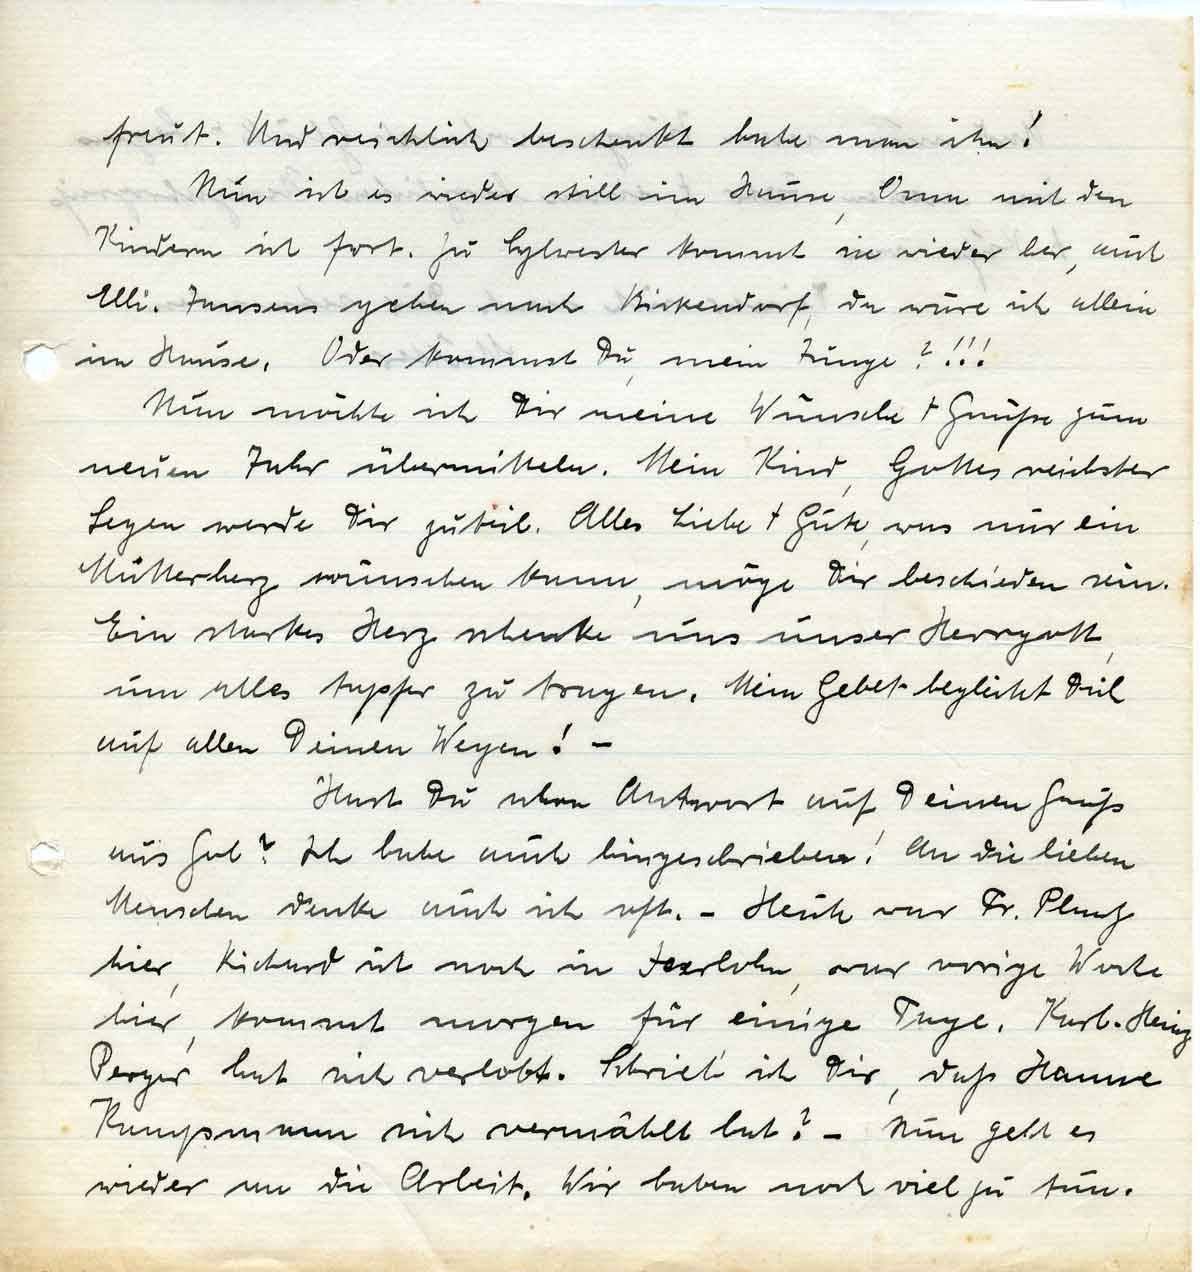 freut. Und reichlich beschenkt habe man ihn!
Nun ist es wieder still im Hause, Omu mit den
Kindern ist fort. Zu Sylvester kommt sie wieder her, auch
Elli. Jansens gehen nach Birkendorf, da wäre ich allein
im Hause. Oder kommst Du, mein Junge?!!!
Nun möchte ich Dir meine Wünsche + Grüße zum
neuen Jahr übermitteln. Mein Kind, Gottes reichster
Segen werde Dir zuteil. Alles Liebe + Gute, was nur ein
Mutterherz wünschen kann, möge Dir beschieden sein.
Ein starkes Herz schenke uns unser Herrgott,
um alles tapfer zu tragen. Mein Gebet begleitet Dich
auf allen Deinen Wegen! –
Hast Du schon Antwort auf Deinen Gruß
aus ? Ich habe auch hingeschrieben! An die lieben
Menschen denke auch ich oft. – Heute war Fr.
hier, Richard ist noch in Iserlohn, war vorige Woche
hier, kommt morgen für einige Tage. Karl-Heinz
hat sich verlobt. Schrieb ich Dir, daß Hanne
Kampsmann sich vermählt hat? – Nun geht es
wieder an die Arbeit. Wir haben noch viel zu tun.